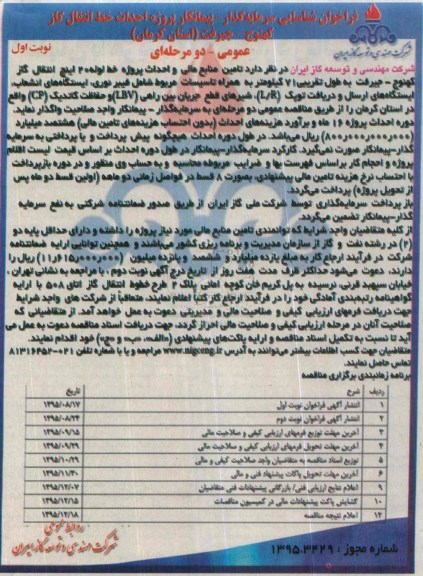 فراخوان شناسایی سرمایه‌گذار - پیمانکار پروژه احداث خط انتقال گاز
کهنوج - جیرفت (استان کرمان)
عمومی - دو مرحله‌ای
نوبت اول
شرکت مهندسی و توسعه گاز ایران
شرکت مهندسی و توسعه گاز ایران در نظر دارد تامین منابع مالی و احداث پروژه خط لوله ۲۰ اینچ انتقال گاز
کهنوج - جیرفت به طول تقریبی ۷۱ کیلومتر به همراه تاسیسات مربوط شامل فیبر نوری، ایستگاههای انشعاب،
ایستگاههای ارسال و دریافت توپک (L/R)، شیرهای قطع جریان بین راهی (LBV) و حفاظت کاتدیک (CP) واقع
در استان کرمان را از طریق مناقصه عمومی دو مرحله‌ای به سرمایه‌گذار - پیمانکار واجد صلاحیت واگذار نماید.
دوره احداث پروژه ۱۶ ماه و برآورد هزینه‌های احداث (بدون احتساب هزینه‌های تامین مالی) هشتصد میلیارد
(۸۰۰،۰۰۰،۰۰۰،۰۰۰) ریال می‌باشد. در طول دوره احداث هیچگونه پیش پرداخت و یا پرداختی به سرمایه
گذار-پیمانکار صورت نمی‌گیرد. کارکرد سرمایه‌گذار-پیمانکار در طول دوره احداث بر اساس فهرست لیست اقلام
پروژه و احجام کار براساس فهرست بها و ضرایب مربوطه محاسبه و به حساب وی منظور و در دوره بازپرداخت
با احتساب نرخ هزینه تامین مالی پیشنهادی، بصورت ۸ قسط در فواصل زمانی دو ماهه (اولین قسط دو ماه پس
از تحویل پروژه) پرداخت می‌گردد.
باز پرداخت سرمایه‌گذاری توسط شرکت ملی گاز ایران از طریق صدور ضمانتنامه شرکتی به نفع سرمایه
گذار-پیمانکار تضمین می‌گردد.
از کلیه متقاضیان واجد شرایط که توانمندی تامین منابع مالی مورد نیاز پروژه را داشته و دارای حداقل پایه دو
(۲) در رشته نفت و گاز از سازمان مدیریت و برنامه ریزی کشور می‌باشند و همچنین توانایی ارایه ضمانتنامه
شرکت در فرآیند ارجاع کار به مبلغ یازده میلیارد و ششصد و پانزده میلیون ریال را
دارند، دعوت می‌شود حداکثر ظرف مدت هفت روز از تاریخ درج آگهی نوبت دوم، با مراجعه به نشانی تهران،
خیابان سپهبد قرنی، نرسیده به پل کریم خان کوچه امانی پلاک ۲ طرح خطوط انتقال گاز اتاق ۵۰۸ با ارایه
گواهینامه رتبه‌بندی آمادگی خود را در فرآیند ارجاع کار کتباً اعلام نمایند. متعاقباً از شرکت های واجد شرایط
جهت دریافت فرمهای ارزیابی کیفی و صلاحیت مالی و مدیریتی دعوت به عمل خواهد آمد. از متقاضیانی که
صلاحیت آنان در مرحله ارزیابی کیفی و صلاحیت مالی احراز گردد، جهت دریافت اسناد مناقصه دعوت به عمل می
آید تا نسبت به تکمیل اسناد مناقصه و ارایه پاکت‌های پیشنهادی («الف»، «ب» و «ج») خود اقدام نمایند.
متقاضیان جهت کسب اطلاعات بیشتر می‌توانند به آدرس www.nigceng.ir مراجعه و یا با شماره تلفن ۰۲۱-۸۱۳۱۶۴۵۲
تماس حاصل نمایند.
برنامه زمانبندی برگزاری مناقصه
ردیف شرح تاریخ
۱ انتشار آگهی فراخوان نوبت اول ۱۳۹۵/۰۸/۱۷
۲ انتشار آگهی فراخوان نوبت دوم ۱۳۹۵/۰۸/۲۴
۳ آخرین مهلت توزیع فرمهای ارزیابی کیفی و صلاحیت مالی ۱۳۹۵/۰۹/۱۵
۴ آخرین مهلت تحویل فرمهای ارزیابی کیفی و صلاحیت مالی ۱۳۹۵/۰۹/۲۹
۵ توزیع اسناد مناقصه به متقاضیان واجد صلاحیت کیفی و مالی ۱۳۹۵/۱۰/۲۹
۶ آخرین مهلت تحویل پاکات پیشنهاد فنی و مالی ۱۳۹۵/۱۱/۳۰
۹ اعلام نتایج ارزیابی فنی/بازرگانی پیشنهادات فنی متقاضیان ۱۳۹۵/۱۲/۰۷
۱۰ گشایش پاکت پیشنهادات مالی در کمیسیون مناقصات ۱۳۹۵/۱۲/۱۵
۱۲ اعلام نتیجه مناقصه ۱۳۹۵/۱۲/۱۸
روابط عمومی
شرکت مهندسی و توسعه گاز ایران
شماره مجوز: ۱۳۹۵،۳۴۲۹